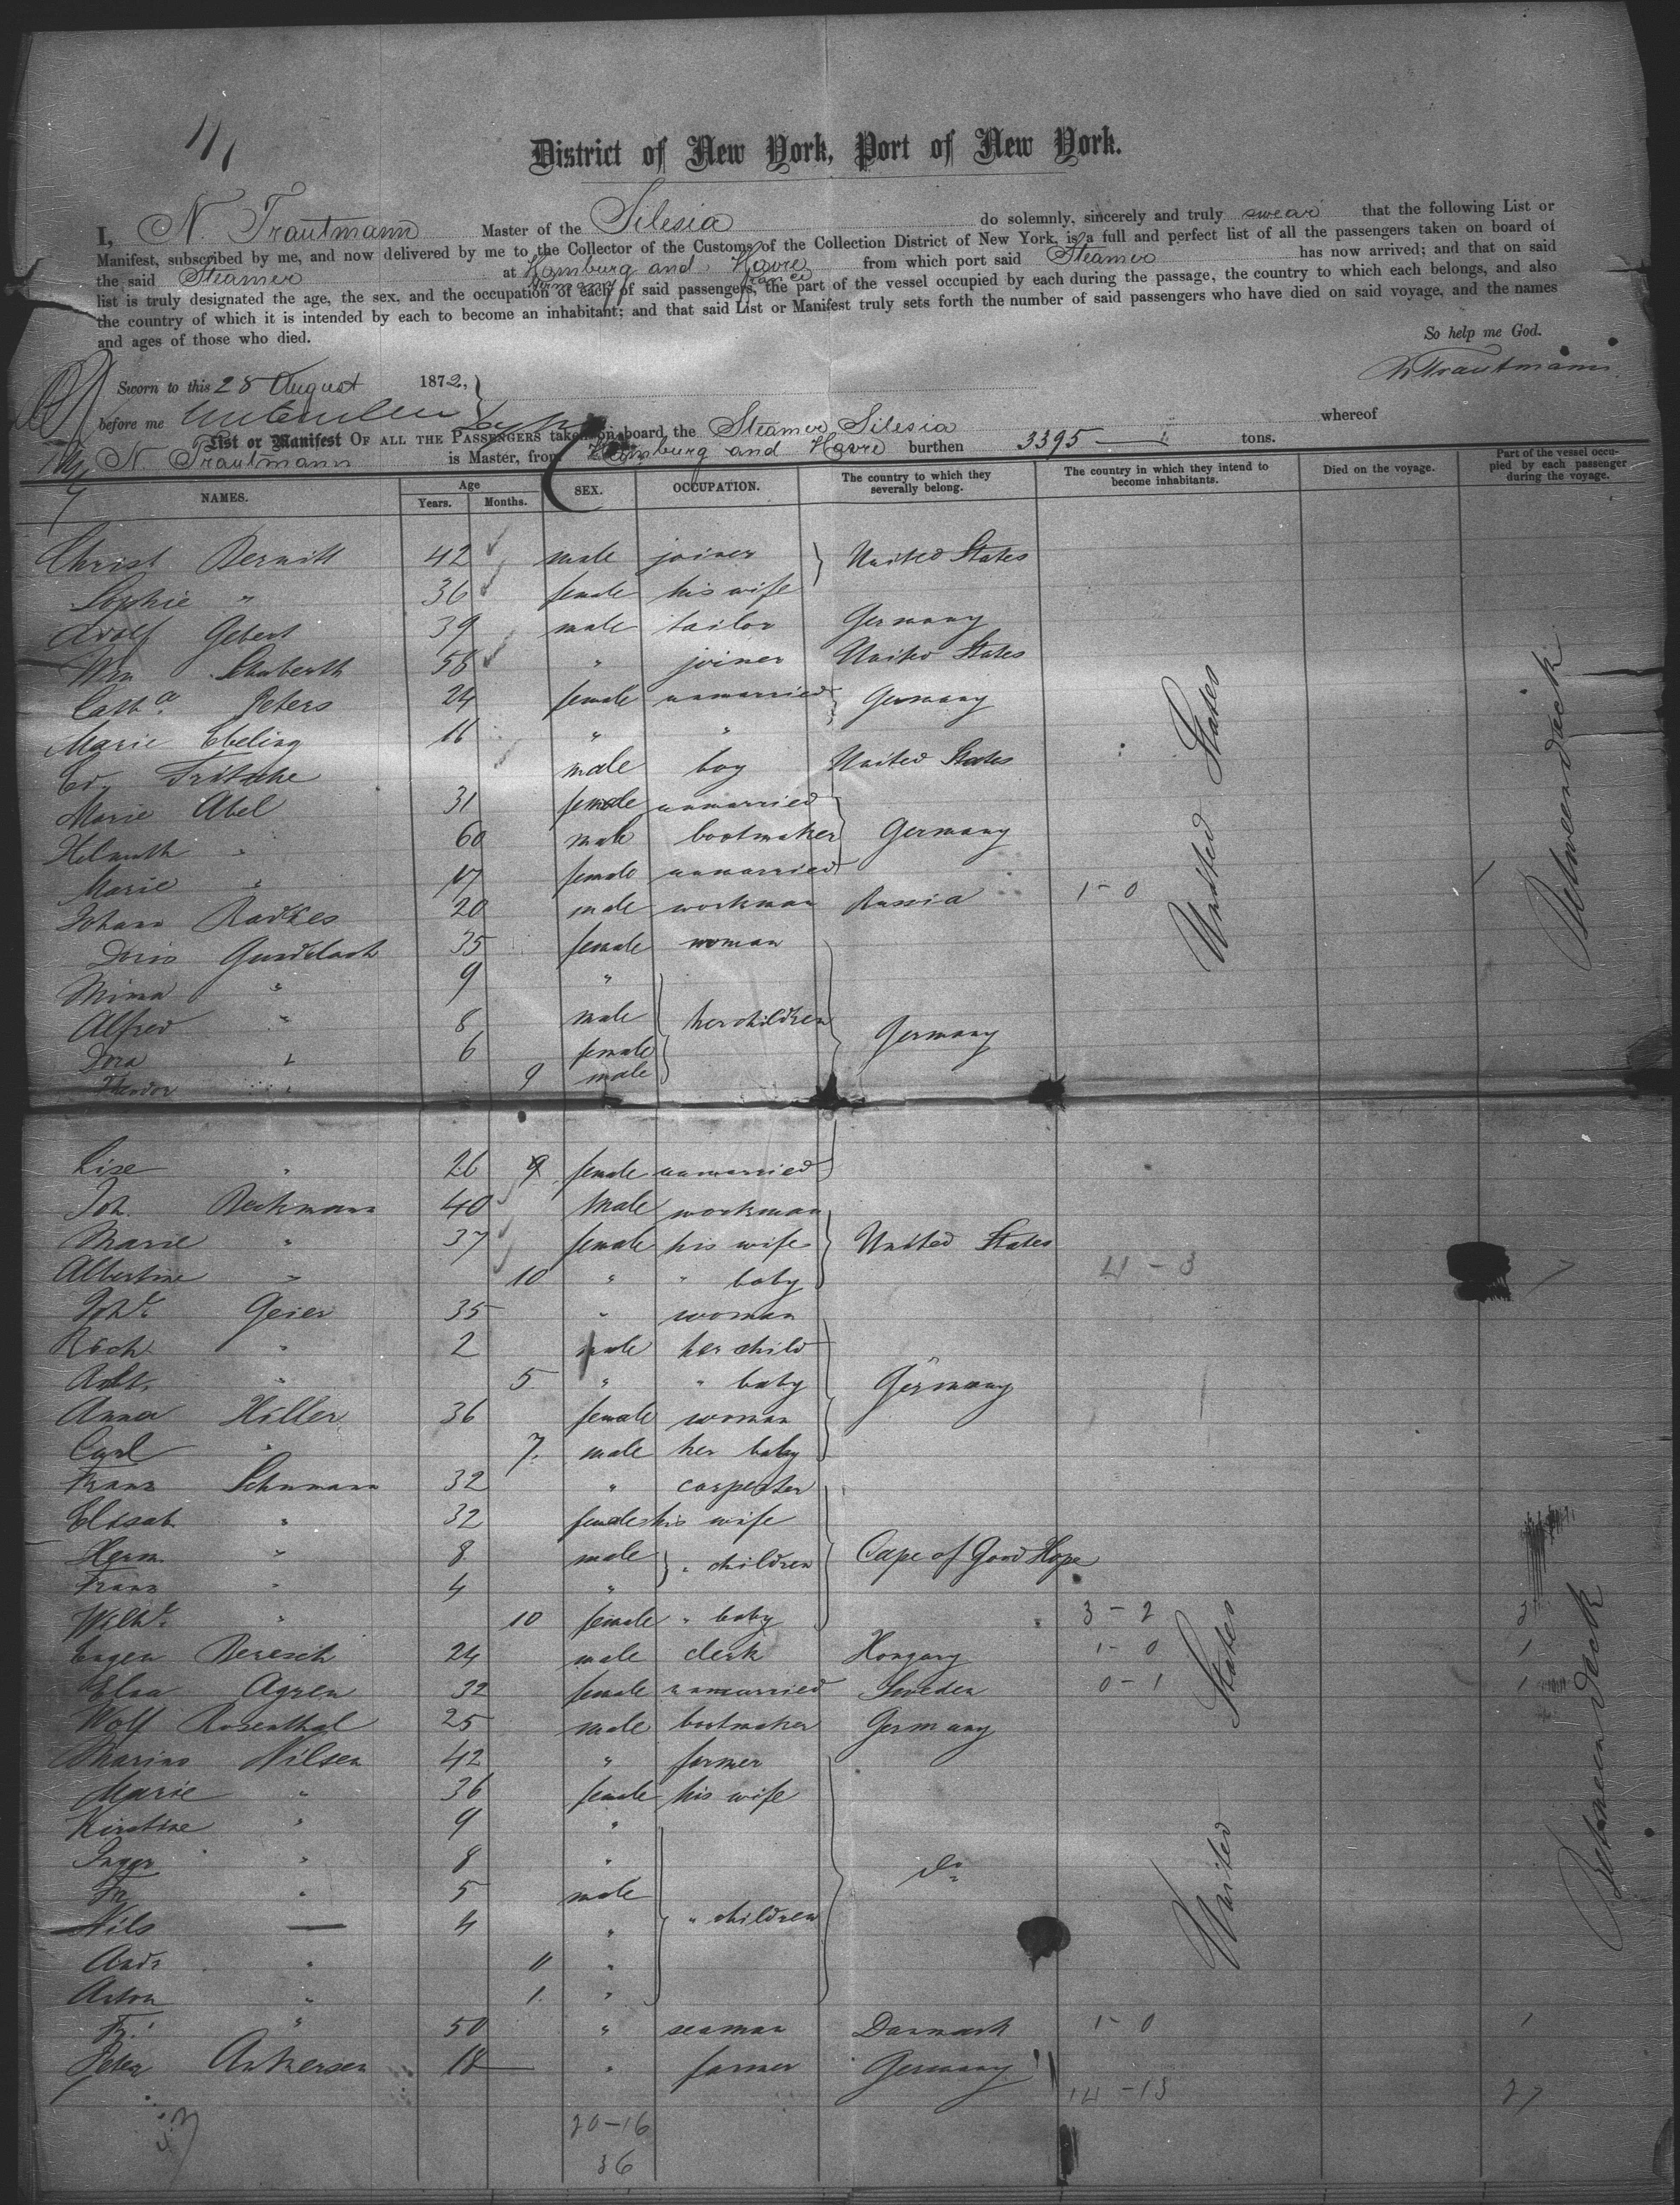 District of New York, Port of New York.
I, N. Trautmann Master of the Silesia do solemnly, sincerely and truly swear that the following List or
Manifest, subscribed by me, and now delivered by me to the Collector of the Customs of the Collection District of New York, is a full and perfect list of all the passengers taken on board of
the said Steamer at Hamburg and Havre from which port said Steamer has now arrived; and that on said
list is truly designated the age, the sex, and the occupation of each of said passengers, the part of the vessel occupied by each during the passage, the country to which each belongs, and also
the country of which it is intended by each to become an inhabitant; and that said List or Manifest truly sets forth the number of said passengers who have died on said voyage, and the names
and ages of those who died.
So help me God.
N Trautmann
Sworn to this 28 August 1872,
before me
List or Manifest OF ALL THE PASSENGERS taken on board the Steamer Silesia whereof
N. Trautmann is Master, from Hamburg and Havre burthen 3395 tons.
NAMES. Age Years. Months. SEX. OCCUPATION. The country to which they severally belong. The country in which they intend to become inhabitants. Died on the voyage. Part of the vessel occupied by each passenger during the voyage.
Christ Bernitt 42 male joiner United States
Sophie " 36 female his wife
Adolf Gebert 39 male tailor Germany
Wm Schuberth 58 " joiner United States
Cath a. Peters 24 female unmarried Germany
Marie Ebeling 16 " "
Ed. Fritsche male boy United States
Marie Abel 31 female unmarried
Helmuth " 60 male bootmaker Germany
Marie " 17 female unmarried
Johann Radkes 20 male workman Russia 1-0
Doris Gundelach 35 female woman
Mina " 9 "
Alfred " 8 male her children Germany
Dora " 6 female
Theodor " 9 male
United States
Betweendeck
Lise " 26 female unmarried
Joh. Beckmann 40 male workman
Marie " 37 female his wife United States
Albertine " 10 " " baby 4-3
Joh e. Geier 35 " woman
" 2 male her child
Robt. " 5 " " baby Germany
Anna Hiller 36 female woman
Carl " 7. male her baby
Franz Schumann 32 " carpenter
Elisab " 32 female his wife
Herm. " 8 male " children Cape of Good Hope
Franz " 4 "
Wilh e. " 10 female " baby 3-2 2
Eugen Beresch 24 male clerk Hongary 1-0 1
Elna Agren 32 female unmarried Sweden 0-1 1
Wolf Rosenthal 25 male bootmaker Germany
Marius Nilsen 42 " farmer
Marie " 36 female his wife
Kirstine " 9 "
Inger " 8 " do
Fr. " 5 male
Nils — 4 " " children
Andr " 11 "
Anton " 1. "
Fr. " 50 " seaman Danmark 1-0 1
Peter Ankersen 18 " farmer Germany
14-13 27
United States
Betweendeck
20-16
36